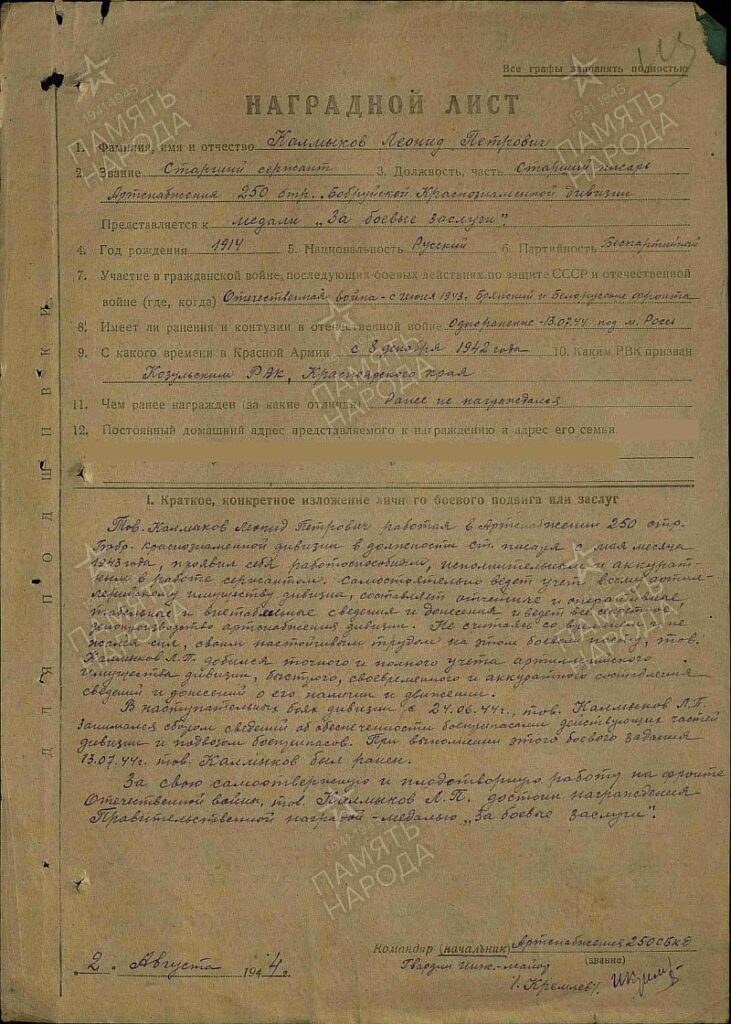 113
Все графы заполнять полностью
НАГРАДНОЙ ЛИСТ
1. Фамилия, имя и отчество Калмыков Леонид Петрович
2. Звание Старший сержант 3. Должность, часть Старший писарь
Артснабжения 250 стр. Бобруйской Краснознаменной дивизии
Представляется к медали „За боевые заслуги".
4. Год рождения 1914 5. Национальность Русский 6. Партийность Беспартийный
7. Участие в гражданской войне, последующих боевых действиях по защите СССР и отечественной
войне (где, когда) Отечественная война - с июня 1943г. Брянский и Белорусские фронта
8. Имеет ли ранения и контузии в отечественной войне Одно ранение - 13.07.44 под м. Россь
9. С какого времени в Красной Армии с 8 декабря 1942 года 10. Каким РВК призван
Козульским РВК, Красноярского края
11. Чем ранее награжден (за какие отличия) Ранее не награждался
12. Постоянный домашний адрес представляемого к награждению и адрес его семьи
I. Краткое, конкретное изложение личного боевого подвига или заслуг
Тов. Калмыков Леонид Петрович работая в Артснабжении 250 стр.
Бобр. краснознаменной дивизии в должности ст. писаря с мая месяца
1943 года, проявил себя работоспособным, исполнительным и аккурат-
ным в работе сержантом. Самостоятельно ведет учет всему артил-
лерийскому имуществу дивизии, составляет отчетные и оперативные
табельные и внетабельные сведения и донесения и ведет все секретное
делопроизводство артснабжения дивизии. Не считаясь со временем и не
жалея сил, своим настойчивым трудом на этом боевом посту, тов.
Калмыков Л.П. добился точного и полного учета артиллерийского
имущества дивизии, быстрого, своевременного и аккуратного составления
сведений и донесений о его наличии и движении.
В наступательных боях дивизии с 24.06.44г., тов. Калмыков Л.П.
занимался сбором сведений об обеспеченности боеприпасами действующих частей
дивизии и подвозом боеприпасов. При выполнении этого боевого задания
13.07.44г. тов. Калмыков был ранен.
За свою самоотверженную и плодотворную работу на фронте
Отечественной войны, тов. Калмыков Л.П. достоин награждения
Правительственной наградой - медалью „За боевые заслуги".
Командир (начальник) Артснабжения 250 СБКД
(звание)
Гвардии инж.-майор
/. Кремлев/.
„2. Августа 1944г.
ДЛЯ ПОДШИВКИ
1941 1945
ПАМЯТЬ
НАРОДА